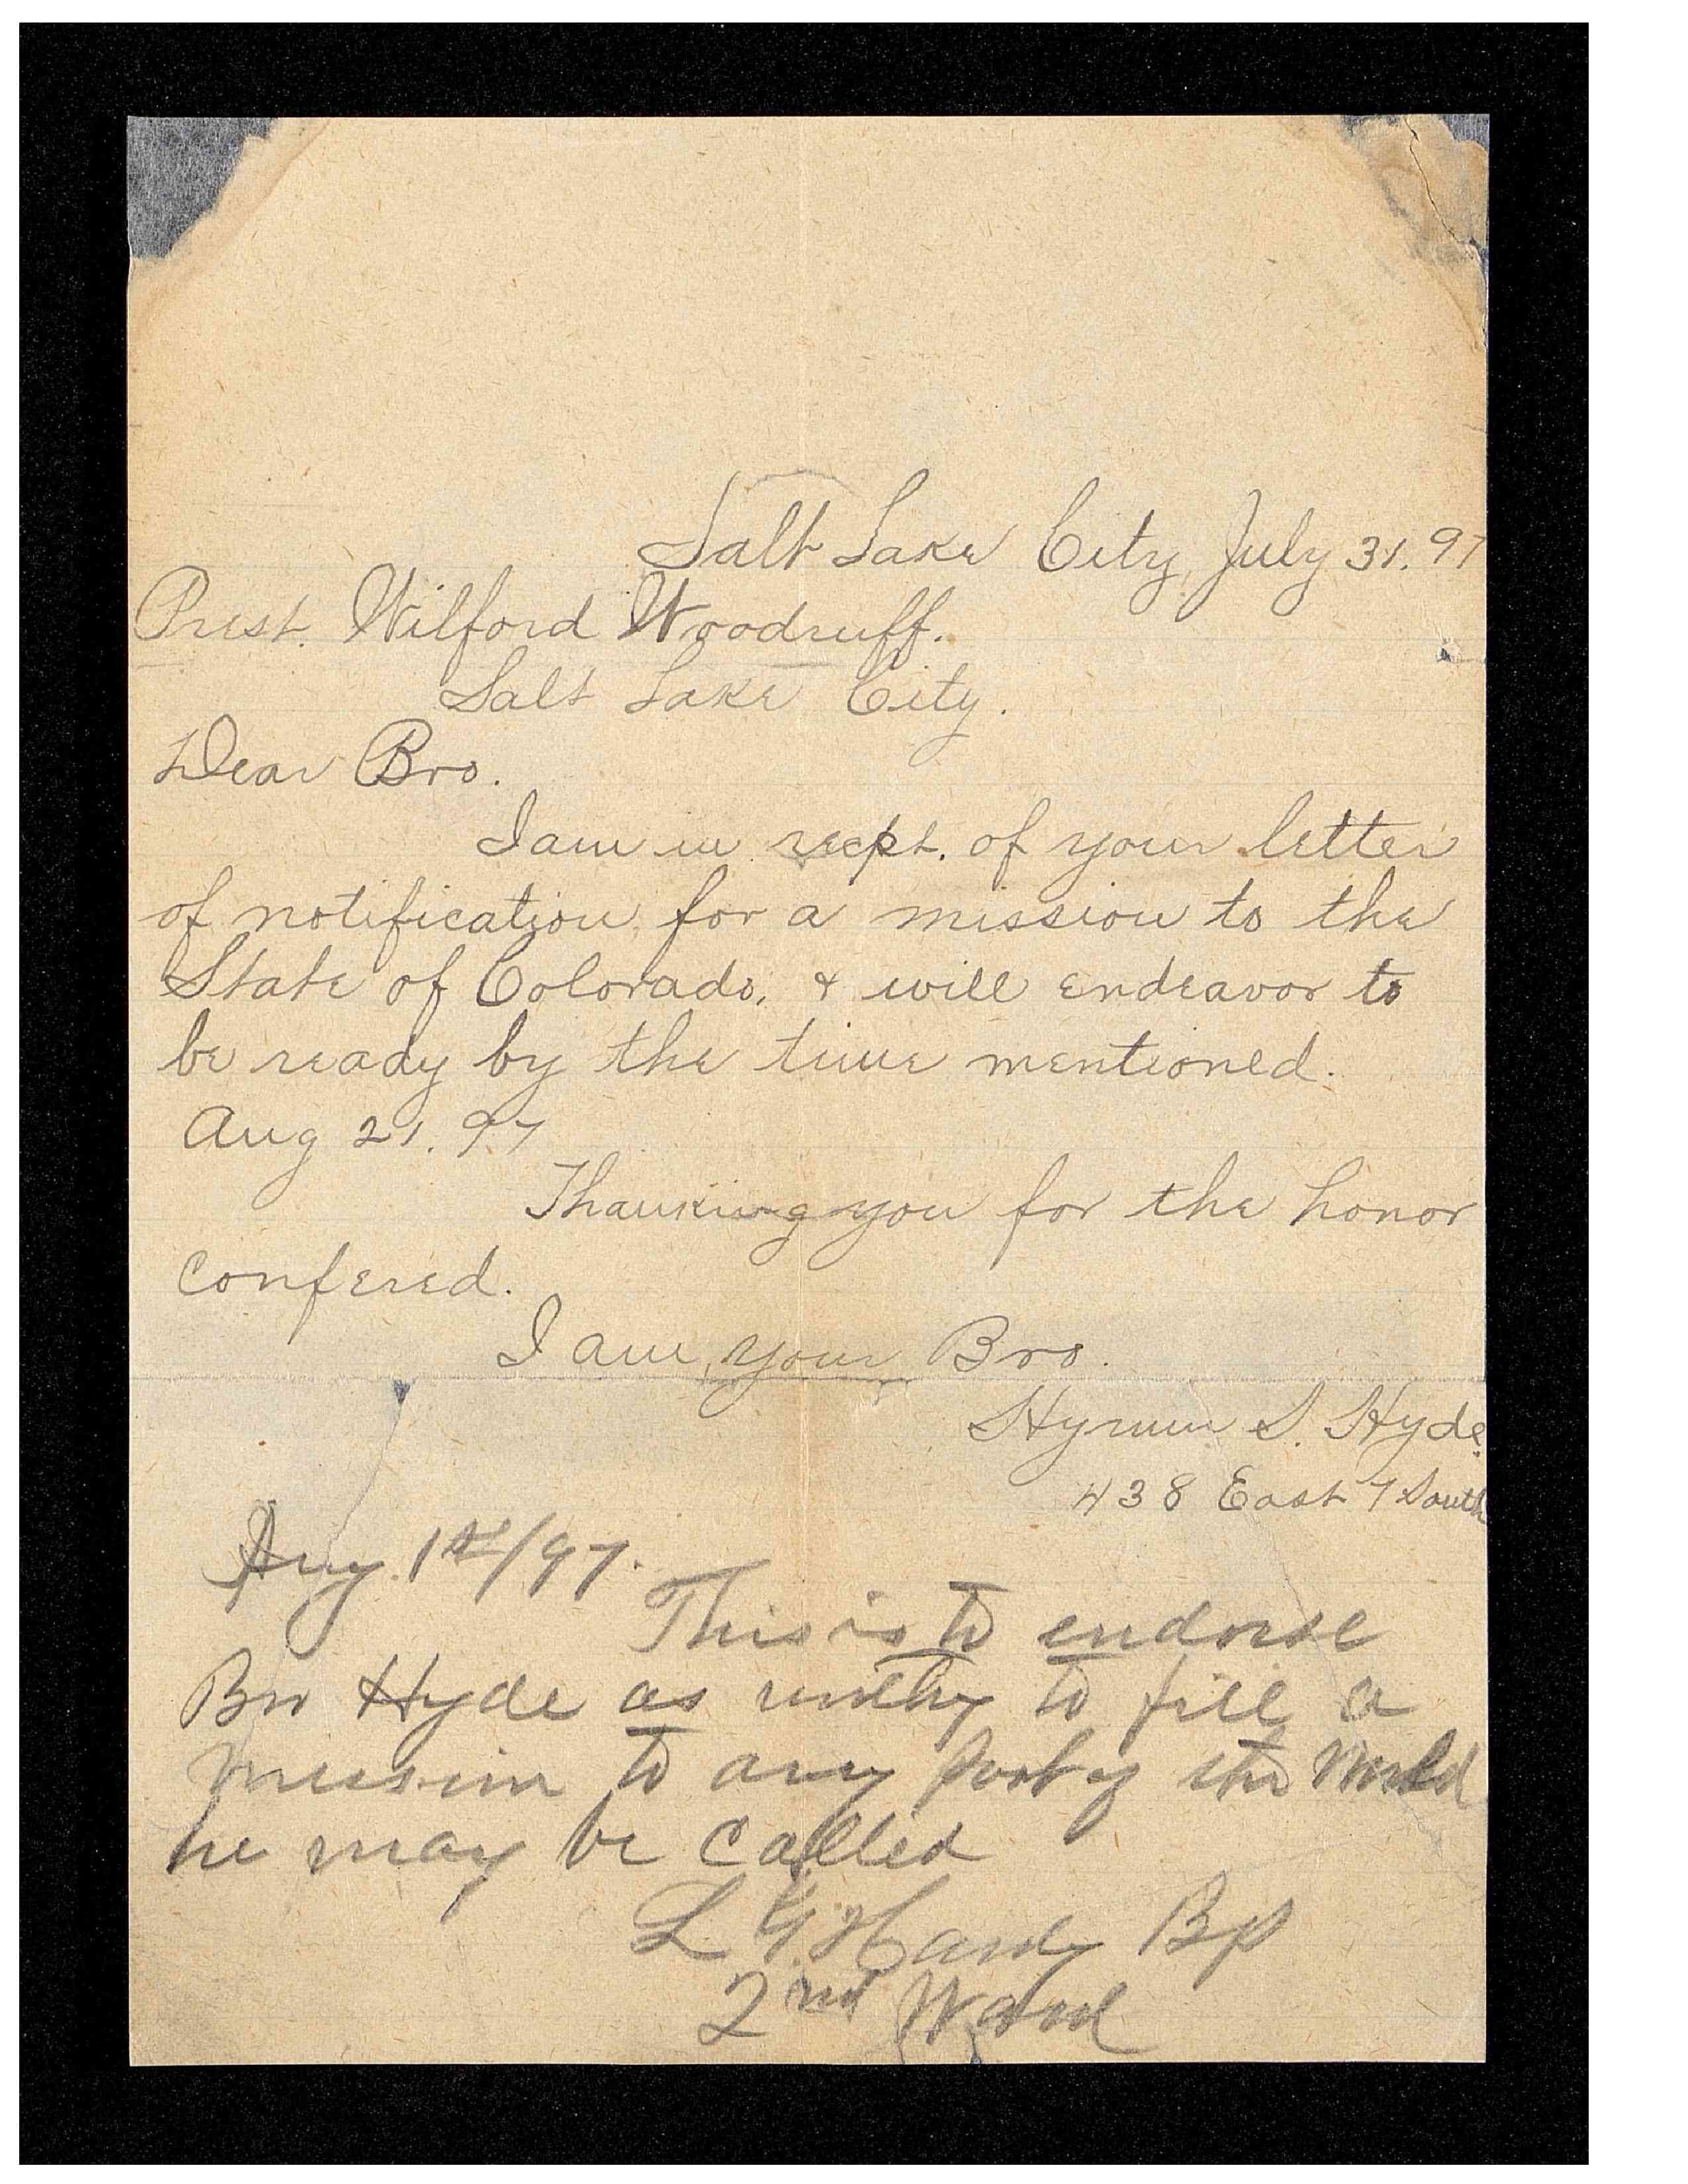 Salt Lake City, July 31. 97
Prest. Wilford Woodruff.
Salt Lake City.
Dear Bro.
I am in recpt. of your letter
of notification, for a mission to the
State of Colorado, & will endeavor to
be ready by the time mentioned.
Aug 21. 97
Thanking you for the honor
confered.
I am, your Bro.
Hyrum S. Hyde.
438 East 7 South
Aug. 1st/97.
This is to endorse
Bro Hyde as worthy to fill a
mission to any part of the World
he may be Called
L G Hardy Bp
2nd Ward